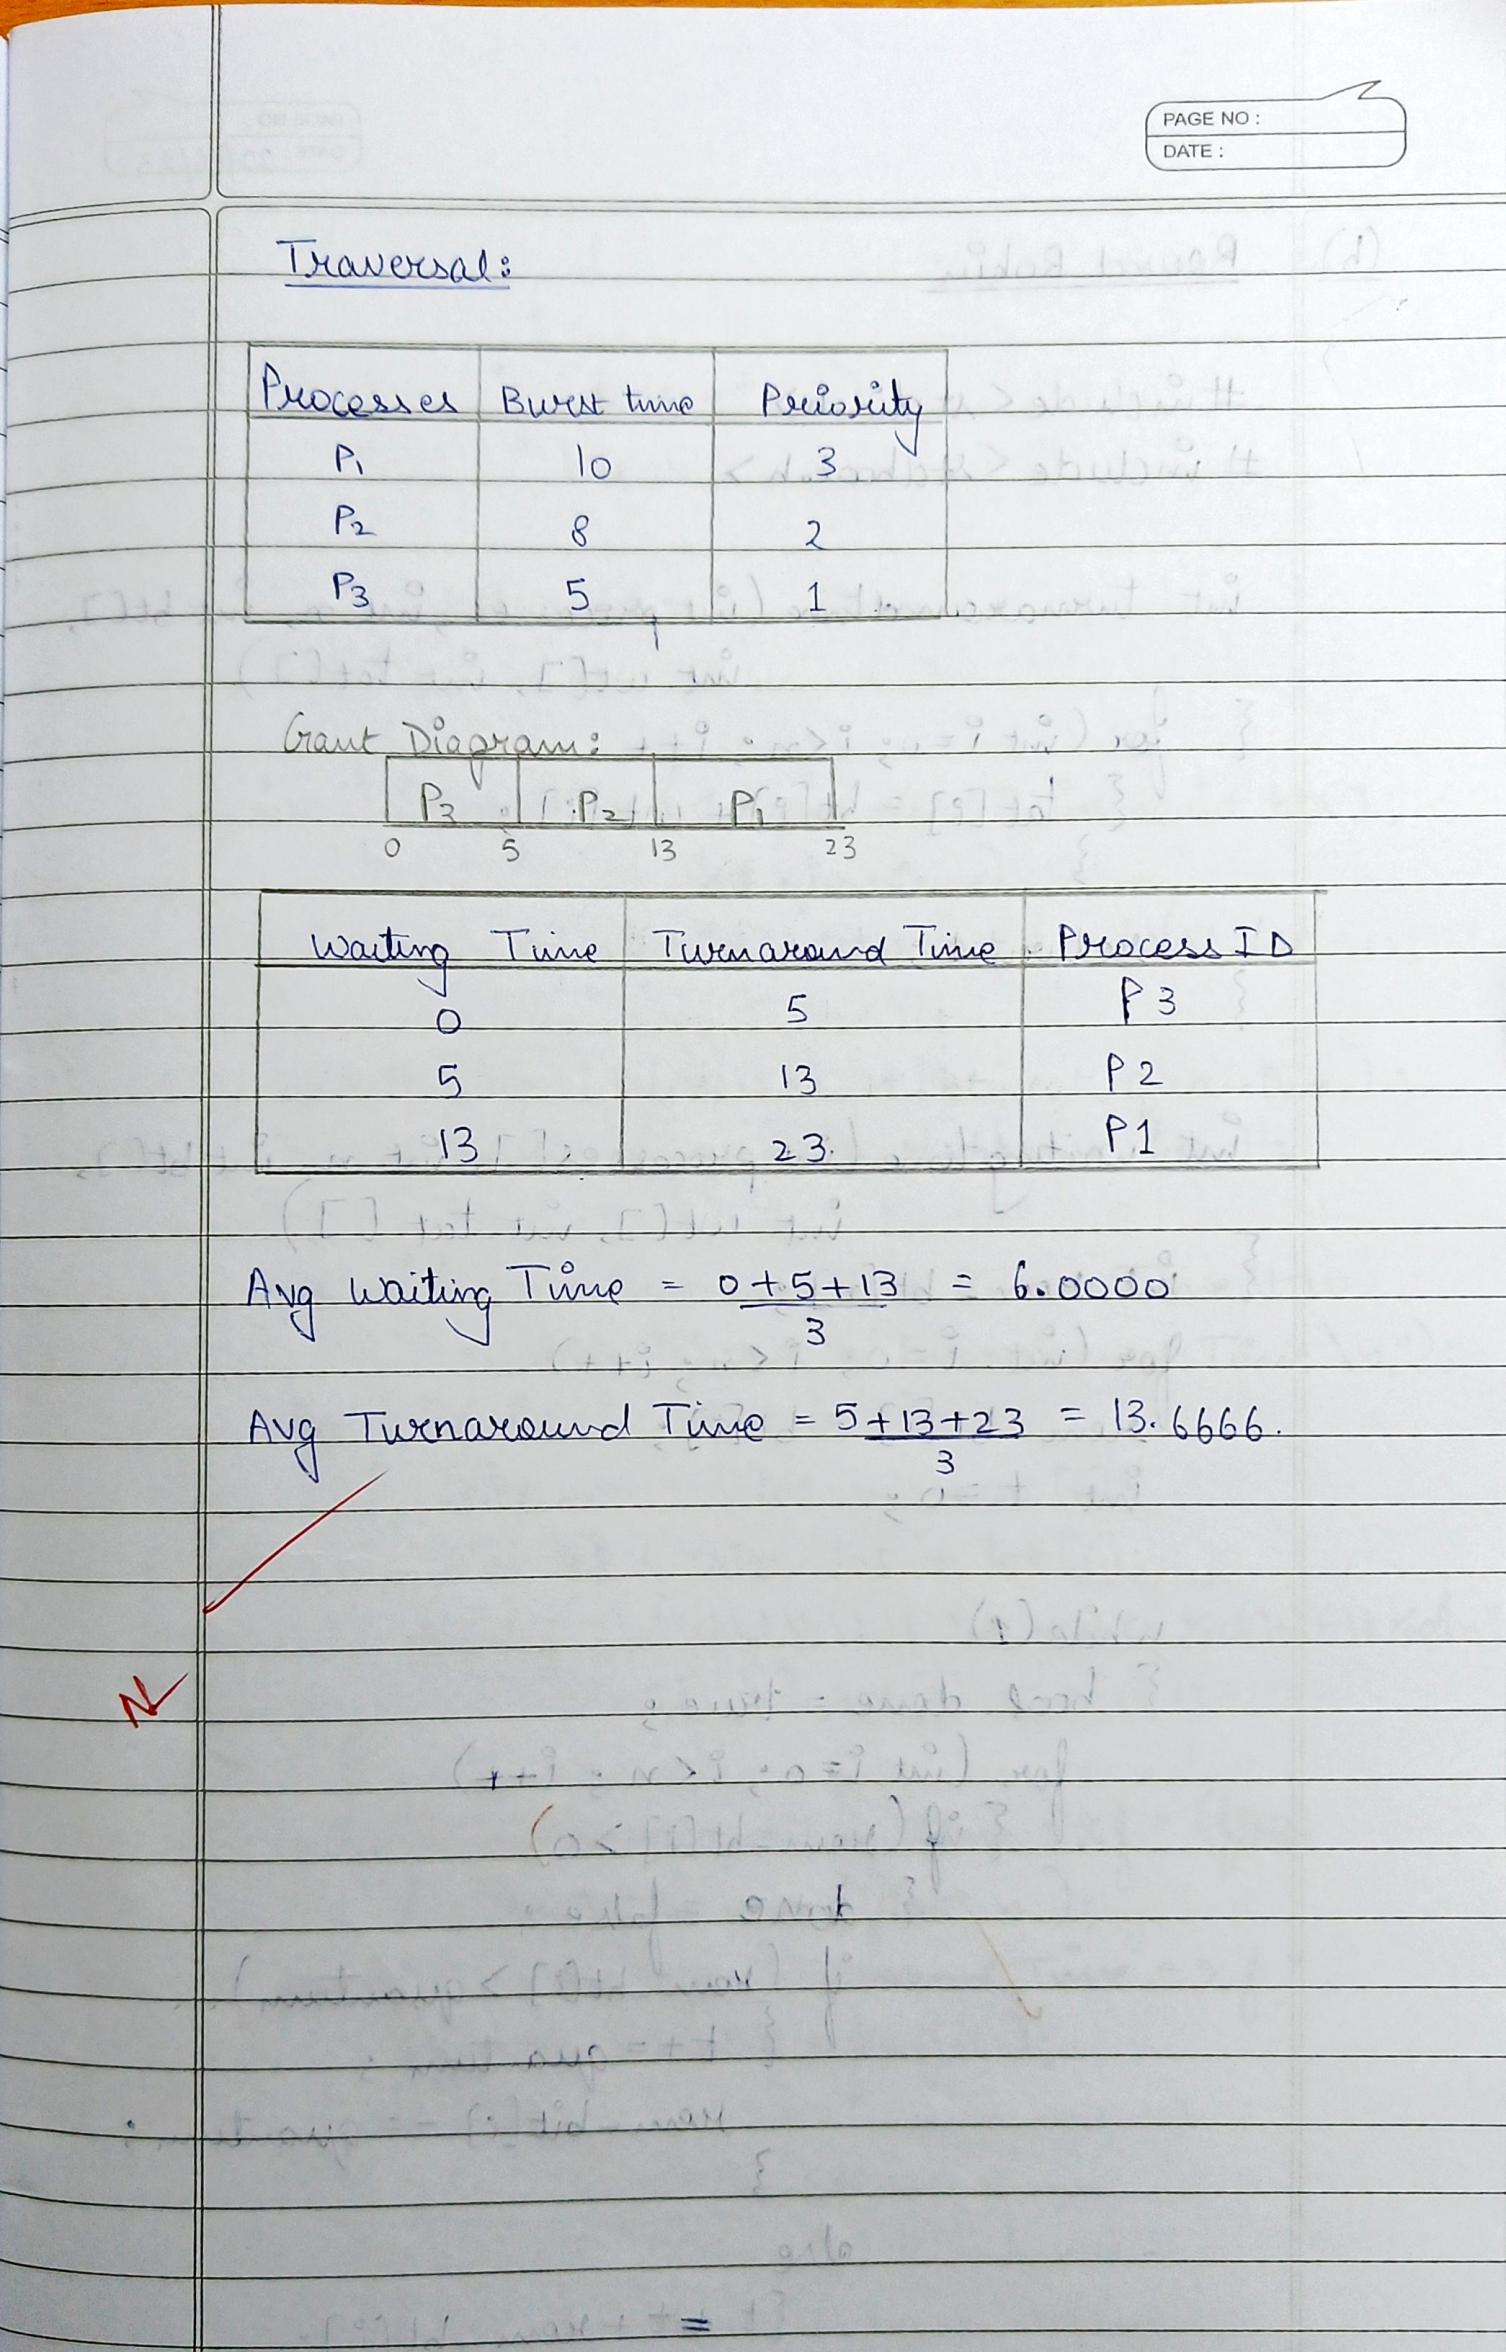 PAGE NO :
DATE :
Traversal:
Processes Burst time Priority
P1 10 3
P2 8 2
P3 5 1
Gant Diagram:
P3 P2 P1
0 5 13 23
Waiting Time Turnaround Time Process ID
0 5 P3
5 13 P2
13 23. P1
Avg Waiting Time = 0+5+13 = 6.0000
3
Avg Turnaround Time = 5+13+23 = 13.6666.
3